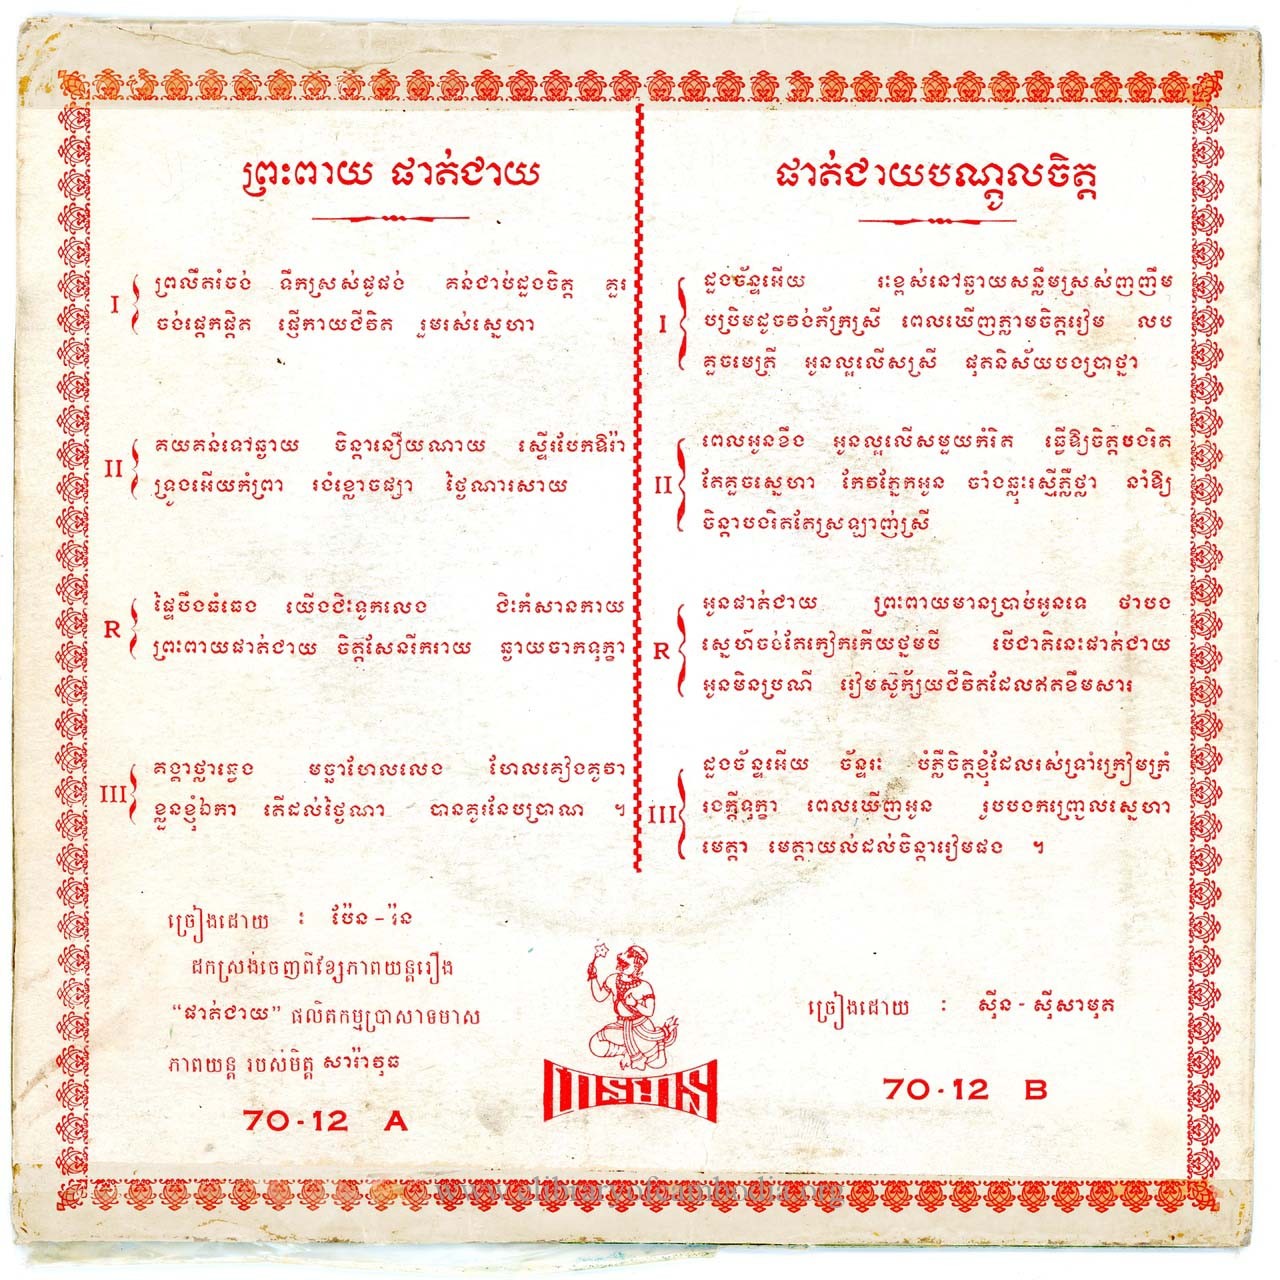 ព្រះពាយ ផាត់ជាយ
I
ព្រលឹតរំចង់ ទឹកស្រស់ផូផង់ គន់ជាប់ដួងចិត្ត គួរ
ចង់ផ្តេកផ្តិត ផ្ញើកាយជីវិត រួមរស់ស្នេហា
II
គយគន់ទៅឆ្ងាយ ចិន្តានឿយណាយ ស្ទើរបែកឱរ៉ា
ទ្រូងអើយកំព្រា រងំខ្លោចផ្សា ថ្ងៃណារសាយ
R
ផ្ទៃបឹងធំធេង យើងជិះទូកលេង ជិះកំសានកាយ
ព្រះពាយផាត់ជាយ ចិត្តសែនរីករាយ ឆ្ងាយចាកទុក្ខា
III
គង្គាថ្លាឆ្វេង មច្ឆាហែលលេង ហែលគៀងគូវា
ខ្លួនខ្ញុំឯកា តើដល់ថ្ងៃណា បានគូរនែបប្រាណ ។
ច្រៀងដោយ : ប៉ែន - រ៉ន
ដកស្រង់ចេញពីខ្សែភាពយន្តរឿង
“ផាត់ជាយ” ផលិតកម្មប្រាសាទមាស
ភាពយន្ត របស់មិត្ត សារ៉ាវុធ
70-12 A
ផាត់ជាយបណ្តូលចិត្ត
I
ដួងច័ន្ទអើយ រះខ្ពស់នៅឆ្ងាយសន្លឹមស្រស់ញញឹម
បប្រិមដូចវង់ភ័ក្រស្រី ពេលឃើញភ្លាមចិត្តរៀម លប
គួចមេត្រី អូនល្អលើសស្រី ផុតនិស័យបងប្រាថ្នា
II
ពេលអូនខឹង អូនល្អលើសមួយកំរិត ធ្វើឱ្យចិត្តបងរិត
តែគួចស្នេហា កែវភ្នែកអូន ចាំងឆ្លុះរស្មីភ្លឺថ្លា នាំឱ្យ
ចិន្តាបងរិតតែស្រឡាញ់ស្រី
R
អូនផាត់ជាយ ព្រះពាយមានប្រាប់អូនទេ ថាបង
ស្នេហ៍ចង់តែកៀកកើយថ្នមបី បើជាតិនេះផាត់ជាយ
អូនមិនប្រណី រៀមស៊ូក្ស័យជីវិតដែលឥតខឹមសារ
III
ដួងច័ន្ទអើយ ច័ន្ទរះ បំភ្លឺចិត្តខ្ញុំដែលរស់ទ្រាំក្រៀមក្រំ
រងក្តីទុក្ខា ពេលឃើញអូន រូបបងកញ្ជ្រោលស្នេហា
មេត្តា មេត្តាយល់ដល់ចិន្តារៀមផង ។
ច្រៀងដោយ : ស៊ីន - ស៊ីសាមុត
70-12 B
ហានុមាន
www.elibraryofcambodia.org